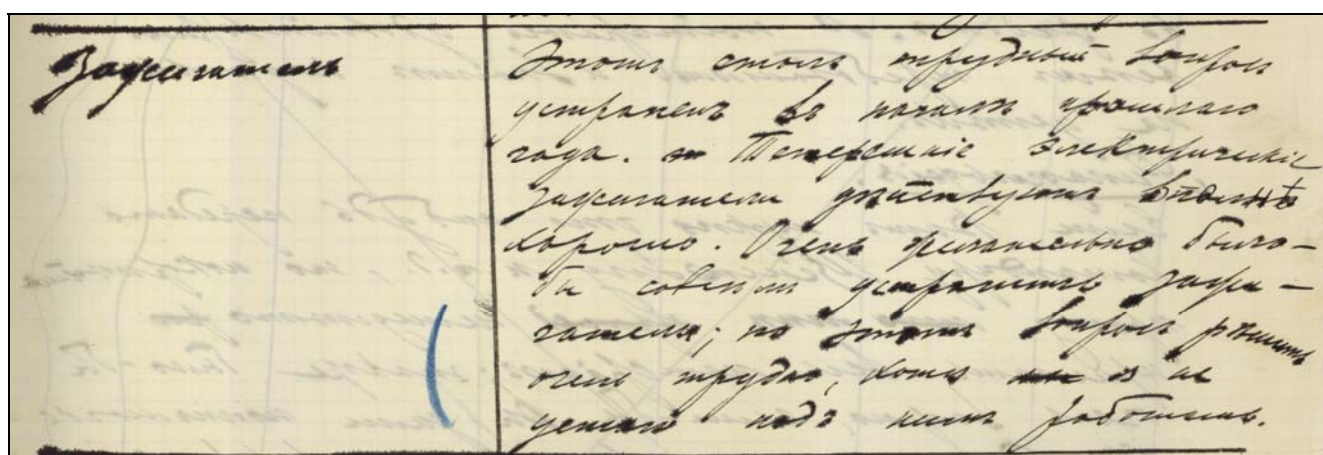 Зажигатель
Этотъ столь трудный вопросъ
устраненъ въ началѣ прошлаго
года. Теперешніе электрическіе
зажигатели дѣйствуютъ вполнѣ
хорошо. Очень желательно было-
бы совсѣмъ устранить зажи-
гатели; но этотъ вопросъ рѣшить
очень трудно, хотя я не
усталъ надъ нимъ работать.